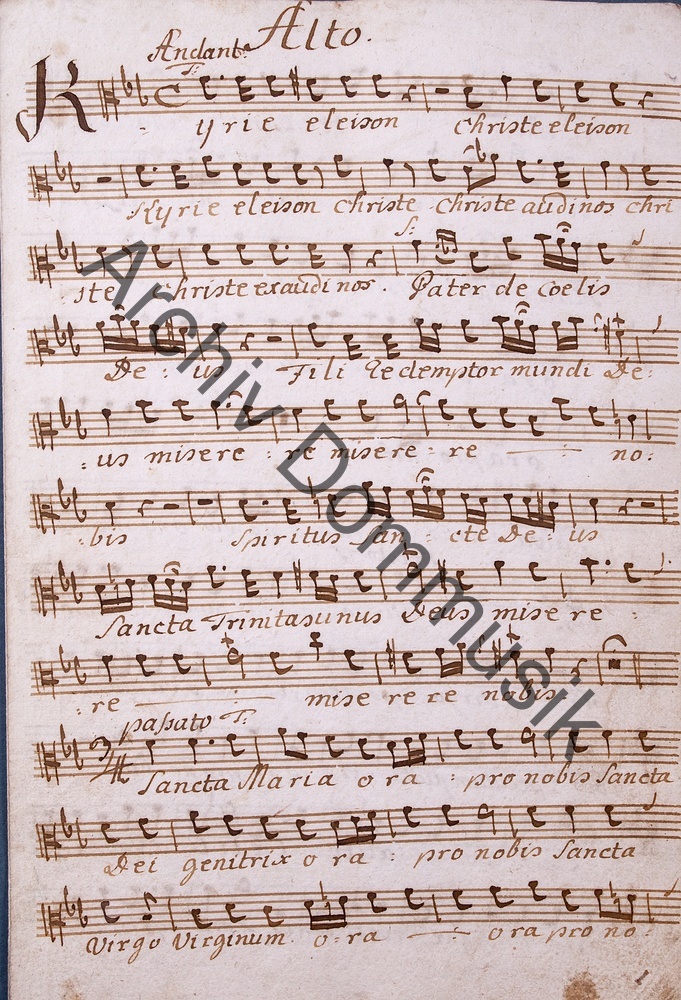 Alto.
Andante
T:
Kyrie eleison Christe eleison
Kyrie eleison Christe Christe audi nos Chri
S:
ste Christe exaudi nos. Pater de Coelis
De : us Fili Redemptor mundi De:
: us misere : re misere : re no:
: bis Spiritus San : cte De : us
Sancta Trinitas unus Deus mise re :
: re mise re re nobis
passato T:
3/4
Sancta Maria o ra : pro nobis Sancta
Dei genitrix o ra : pro nobis Sancta
Virgo Virginum o : ra o ra pro no :
1
Archiv Dommusik